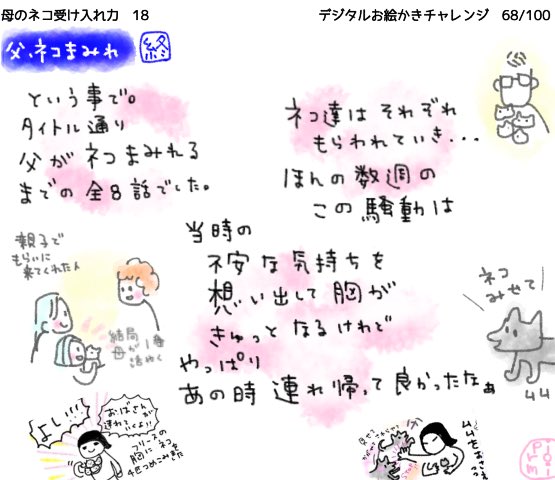 母のネコ受け入れ力 18
デジタルお絵かきチャレンジ 68/100
父、ネコまみれ 終
という事で。
タイトル通り
父が ネコ まみれる
までの 全8話でした。
ネコ達は それぞれ
もらわれていき・・・
ほんの 数週の
この 騒動は
当時の
不安な気持ちを
想い出して 胸が
きゅっと なるけれど
やっぱり
あの時 連れ帰って 良かったなぁ
親子で
もらいに
来てくれた人
結局
母が1番
話ぬく
ネコ
みせて
44
よし!!!
おばさんが
連れてくよ!!
フリースの
胸に ネコを
4匹つめこみました